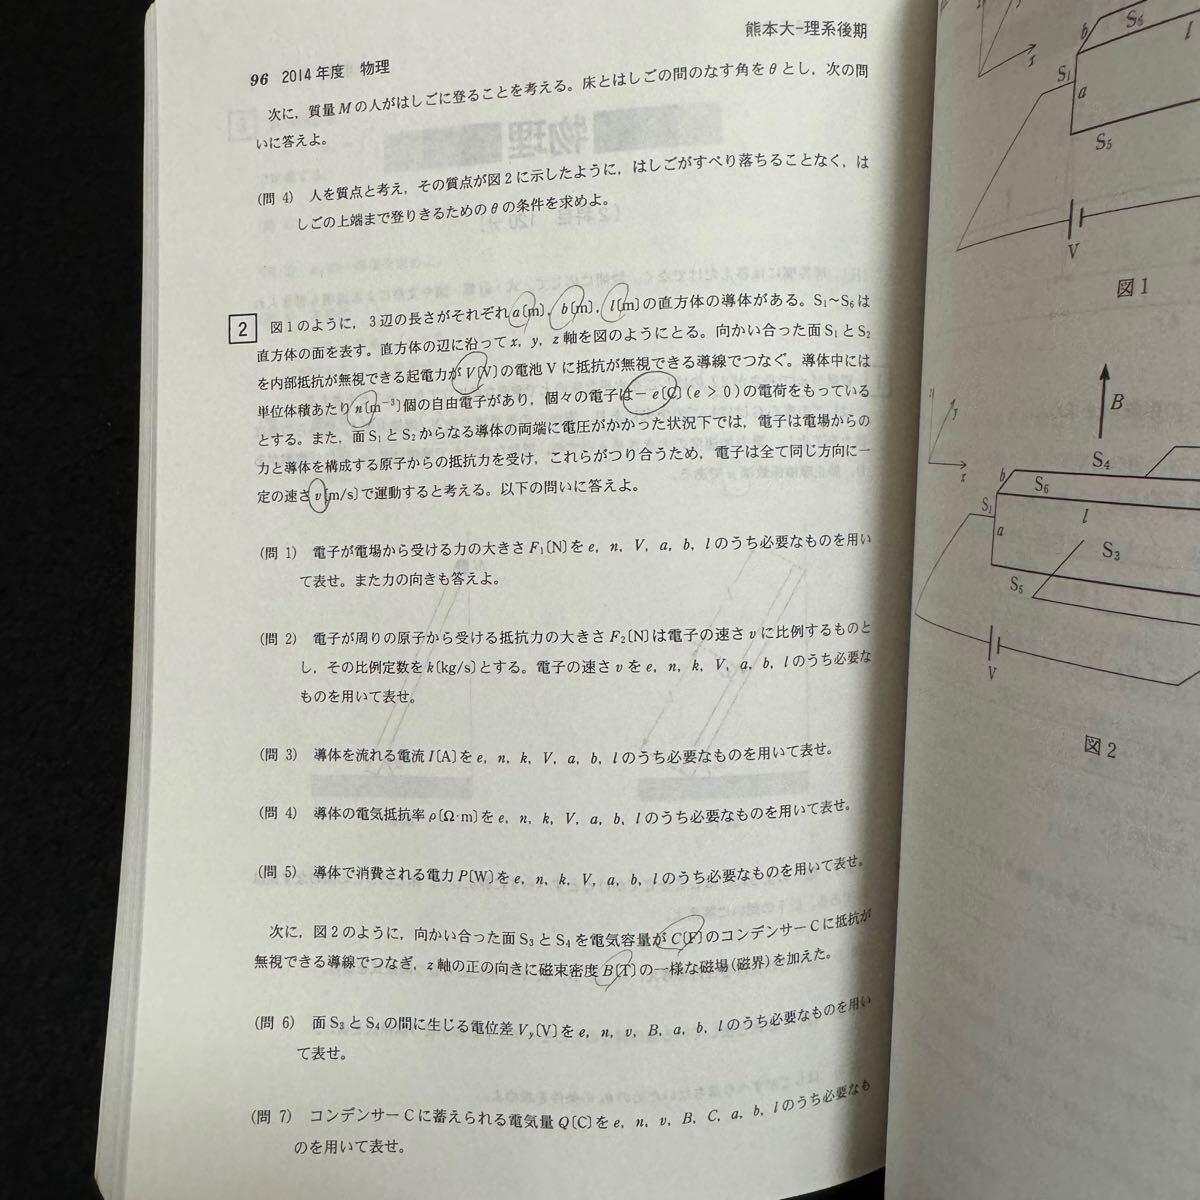 熊本大-理系後期
96 2014年度 物理
次に，質量Mの人がはしごに登ることを考える。床とはしごの間のなす角をθとし，次の問
いに答えよ。
(問 4) 人を質点と考え，その質点が図2に示したように，はしごがすべり落ちることなく，は
しごの上端まで登りきるためのθの条件を求めよ。
2 図1のように，3辺の長さがそれぞれa〔m〕，b〔m〕，l〔m〕の直方体の導体がある。S₁〜S₆は
直方体の面を表す。直方体の辺に沿ってx，y，z軸を図のようにとる。向かい合った面S₁とS₂
を内部抵抗が無視できる起電力がV〔V〕の電池Vに抵抗が無視できる導線でつなぐ。導体中には
単位体積あたりn〔m⁻³〕個の自由電子があり，個々の電子は−e〔C〕(e > 0)の電荷をもっている
とする。また，面S₁とS₂からなる導体の両端に電圧がかかった状況下では，電子は電場からの
力と導体を構成する原子からの抵抗力を受け，これらがつり合うため，電子は全て同じ方向に一
定の速さv〔m/s〕で運動すると考える。以下の問いに答えよ。
(問 1) 電子が電場から受ける力の大きさF₁〔N〕をe，n，V，a，b，lのうち必要なものを用い
て表せ。また力の向きも答えよ。
(問 2) 電子が周りの原子から受ける抵抗力の大きさF₂〔N〕は電子の速さvに比例するものと
し，その比例定数をk〔kg/s〕とする。電子の速さvをe，n，k，V，a，b，lのうち必要な
ものを用いて表せ。
(問 3) 導体を流れる電流I〔A〕をe，n，k，V，a，b，lのうち必要なものを用いて表せ。
(問 4) 導体の電気抵抗率ρ〔Ω·m〕をe，n，k，V，a，b，lのうち必要なものを用いて表せ。
(問 5) 導体で消費される電力P〔W〕をe，n，k，V，a，b，lのうち必要なものを用いて表せ。
次に，図2のように，向かい合った面S₃とS₄を電気容量がC〔F〕のコンデンサーCに抵抗が
無視できる導線でつなぎ，z軸の正の向きに磁束密度B〔T〕の一様な磁場(磁界)を加えた。
(問 6) 面S₃とS₄の間に生じる電位差Vy〔V〕をe，n，v，B，a，b，lのうち必要なものを用い
て表せ。
(問 7) コンデンサーCに蓄えられる電気量Q〔C〕をe，n，v，B，C，a，b，lのうち必要なも
のを用いて表せ。
b S₆ l
S₁ a
S₅
V
図1
B
z y
x
S₄
b S₆
S₁ l
a S₃
S₅
V
図2